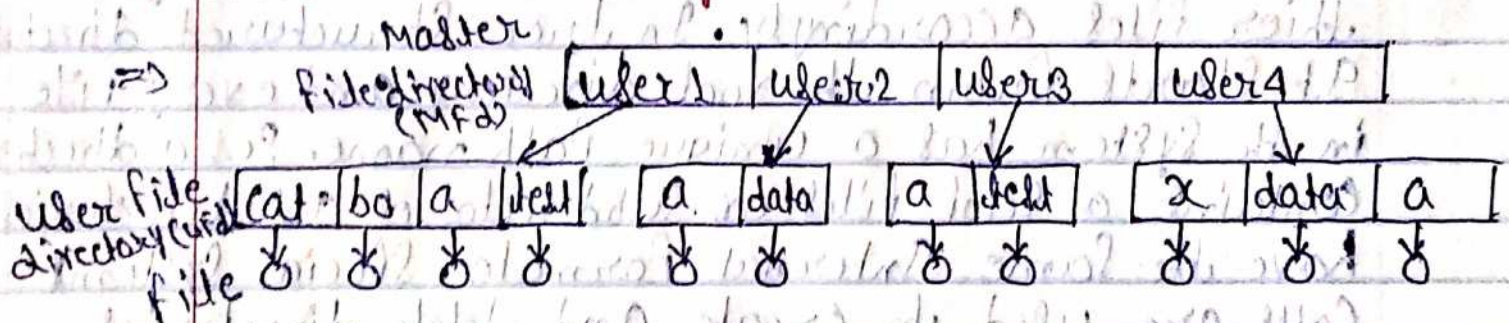 => Master
file directory
(MFd)
user1 user2 user3 user4
User file
directory (ufd)
cat bo a test a data a test x data a
file